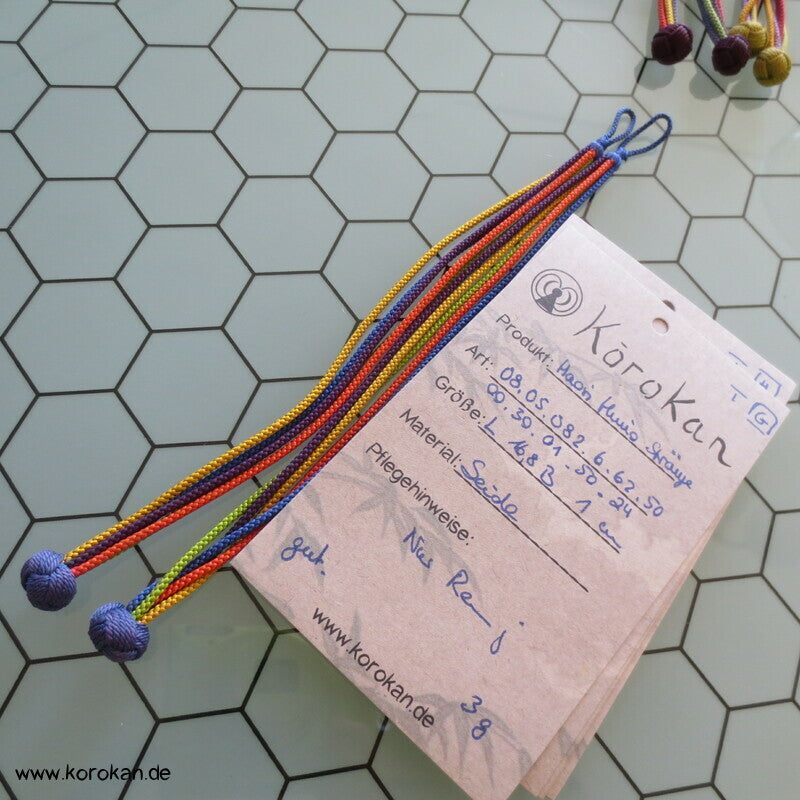 Kōrokan
Produkt: Haori Himo Stränge
Art: 08.05.082.6.62.50
00.30.01-50-24
Größe: L 16,8 B 1 cm
Material: Seide
Pflegehinweise:
gut.
www.korokan.de
3 g
T G
www.korokan.de